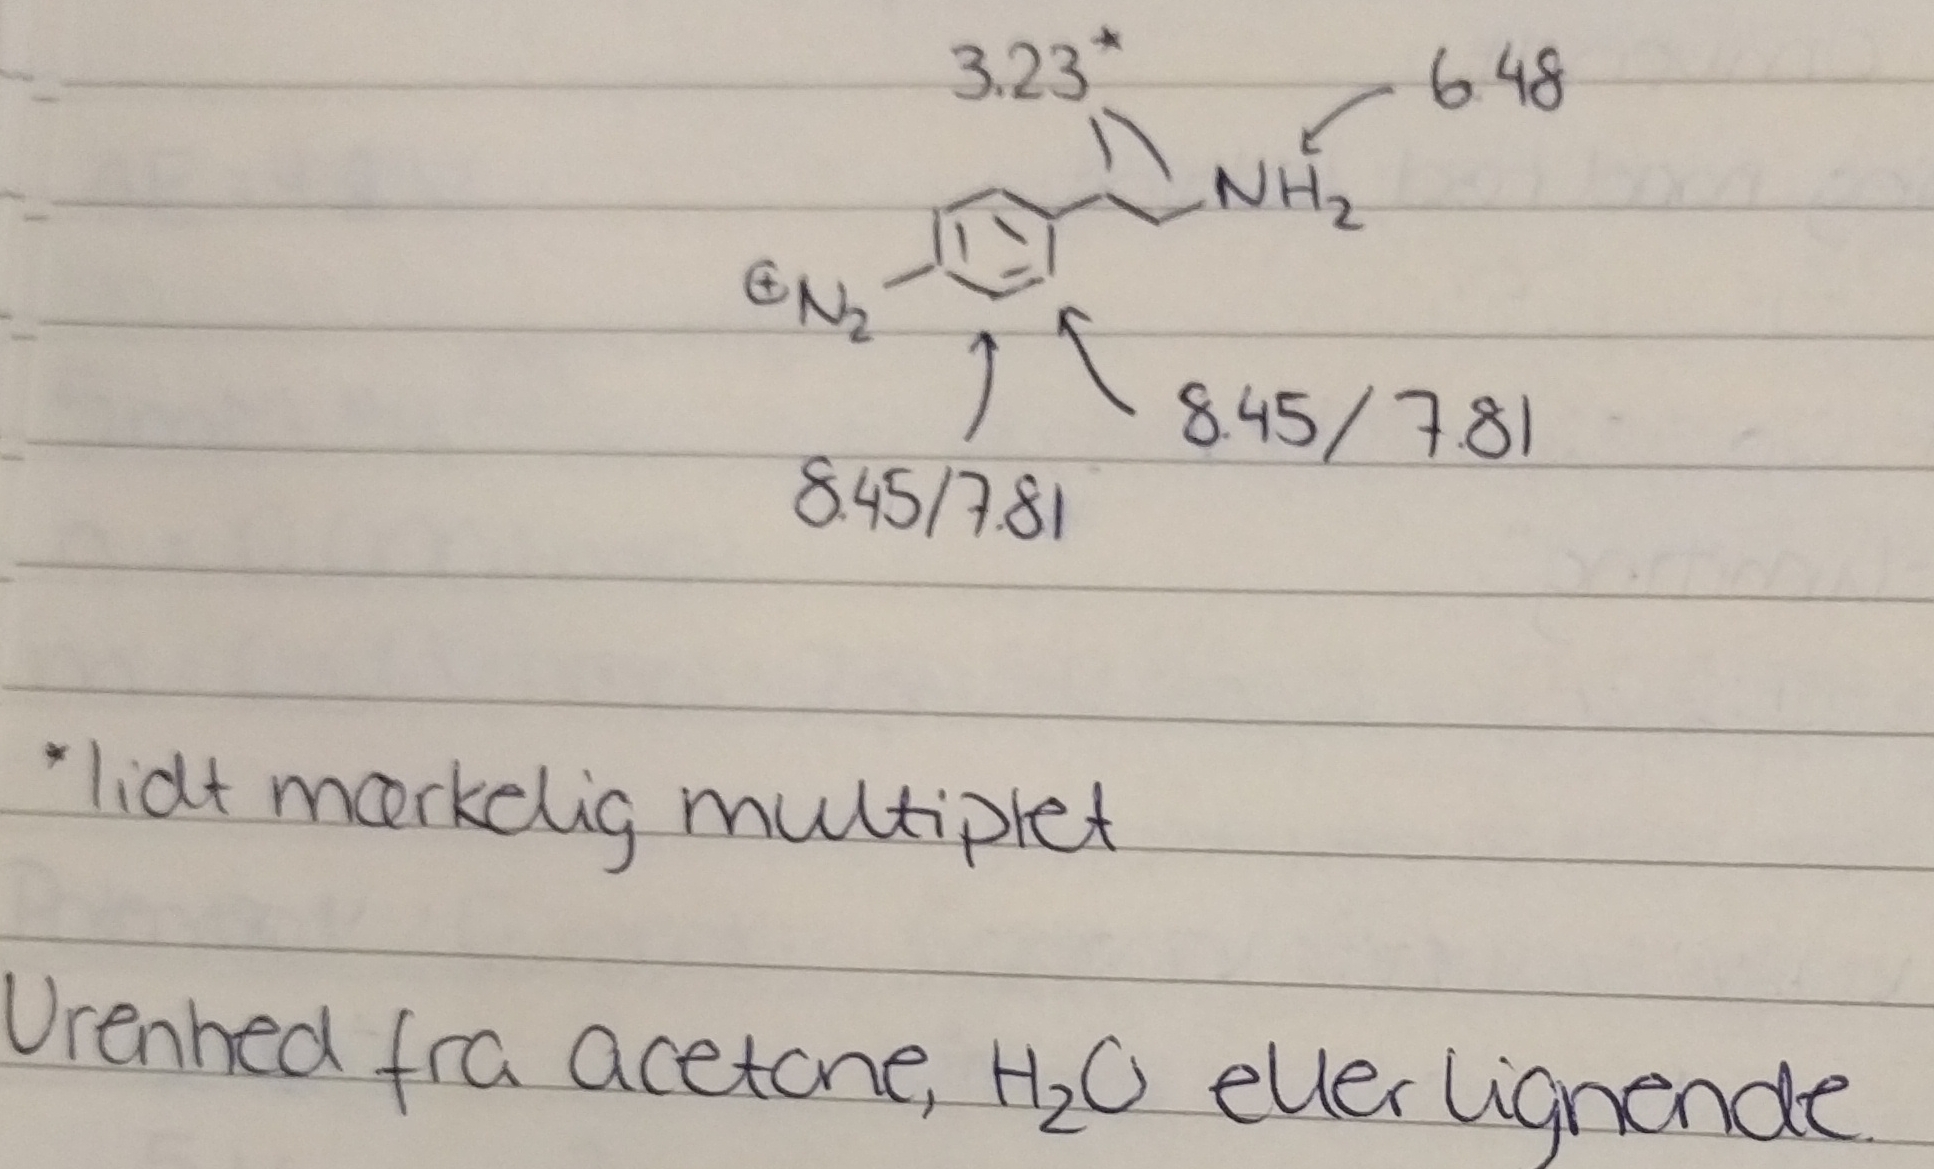 3.23*
6.48
NH₂
⊕N₂
8.45/7.81
8.45/7.81
*lidt mærkelig multiplet
Urenhed fra acetone, H₂O eller lignende.